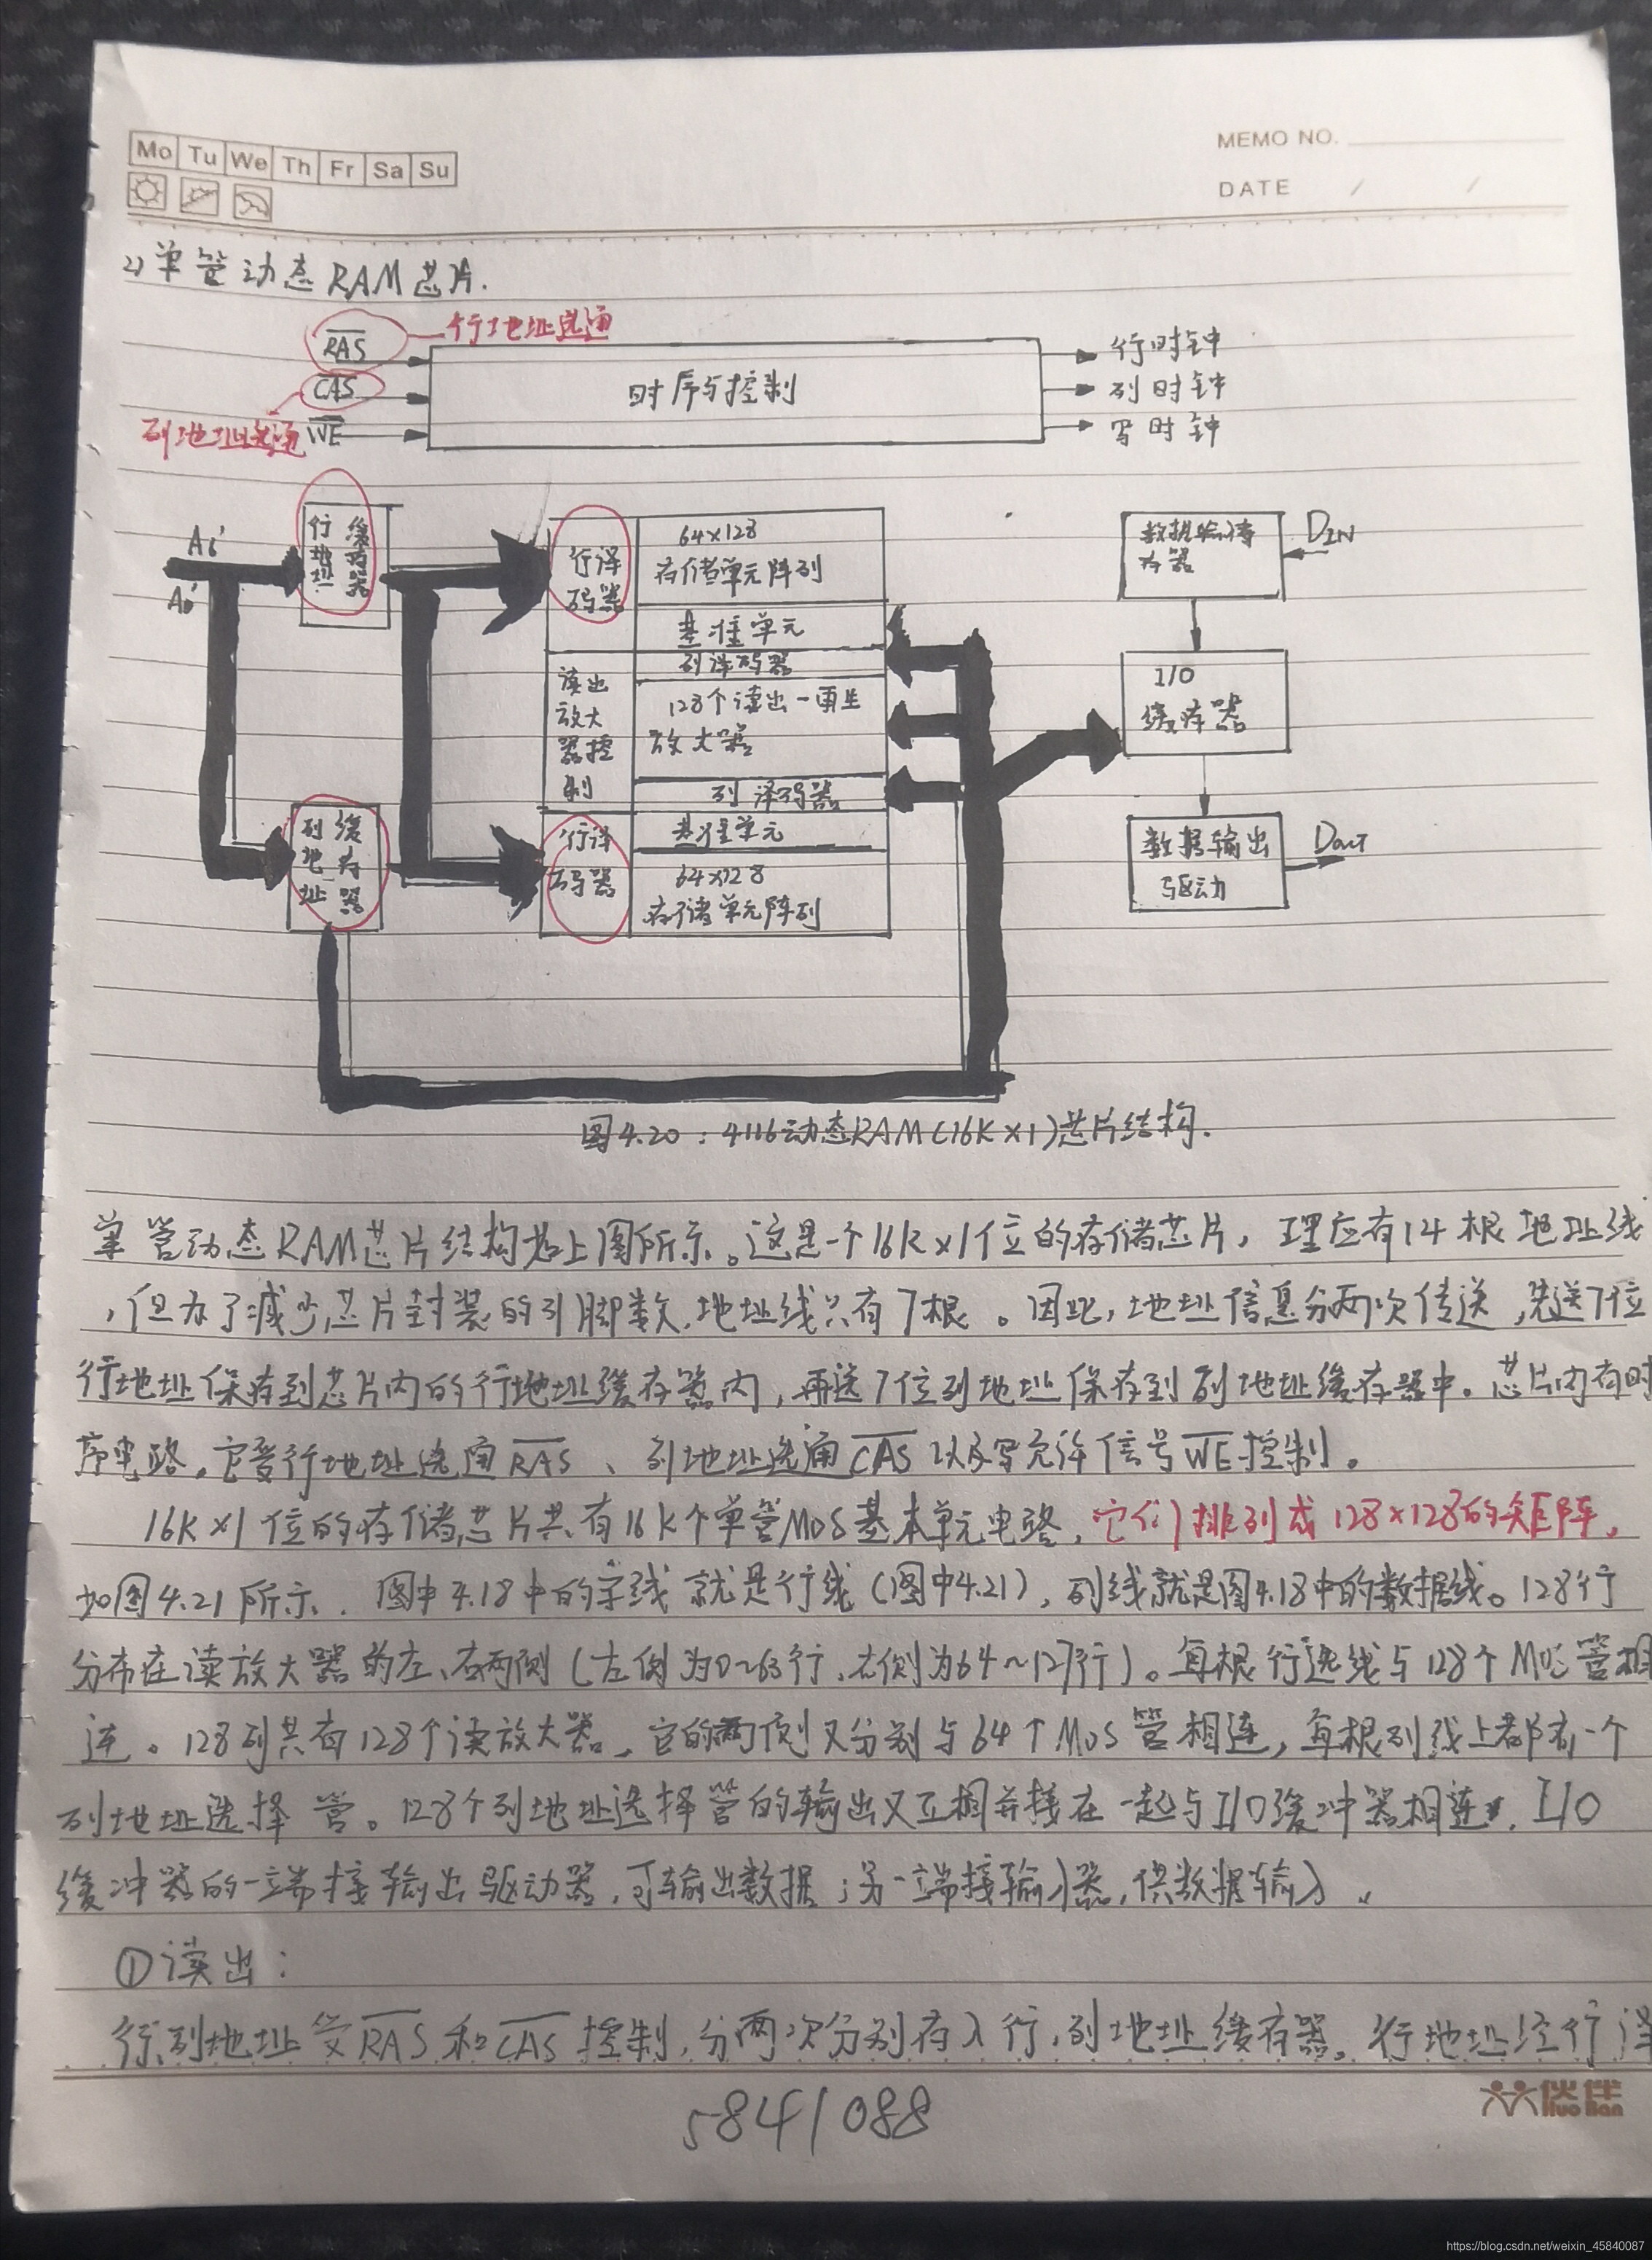 Mo Tu We Th Fr Sa Su
MEMO NO.
DATE / /
2) 单管动态RAM芯片.
RAS
行地址选通
CAS
列地址选通
WE
时序与控制
行时钟
列时钟
写时钟
A6'
A0'
行地址
缓存器
列地址
缓存器
行译
码器
64×128
存储单元阵列
基准单元
列译码器
读出
放大
器控
制
128个读出一再生
放大器
列译码器
行译
码器
基准单元
64×128
存储单元阵列
数据输
存器
DIN
I/O
缓存器
数据输出
驱动
DOUT
图4.20：4116动态RAM(16K×1)芯片结构.
单管动态RAM芯片结构如上图所示。这是一个16K×1位的存储芯片，理应有14根地址线
，但为了减少芯片封装的引脚数,地址线只有7根。因此，地址信息分两次传送，先送7位
行地址保存到芯片内的行地址缓存器内，再送7位列地址保存到列地址缓存器中。芯片内有时
序电路，它受行地址选通RAS、列地址选通CAS以及写允许信号WE控制。
16K×1位的存储芯片共有16K个单管MOS基本单元电路，它们排列成128×128的矩阵，
如图4.21所示。图中4.18中的字线就是行线（图中4.21），列线就是图4.18中的数据线。128行
分布在读放大器的左、右两侧（左侧为0~63行，右侧为64~127行）。每根行选线与128个MOS管相
连。128列共有128个读放大器，它的两侧又分别与64个MOS管相连，每根列线上都有一个
列地址选择管。128个列地址选择管的输出又互相并接在一起与I/O缓冲器相连，I/O
缓冲器的一端接输出驱动器，可输出数据；另一端接输入器，供数据输入。
①读出：
行、列地址受RAS和CAS控制，分两次分别存入行、列地址缓存器。行地址经行译
伙伴
Huo Ban
5841088
https://blog.csdn.net/weixin_45840087